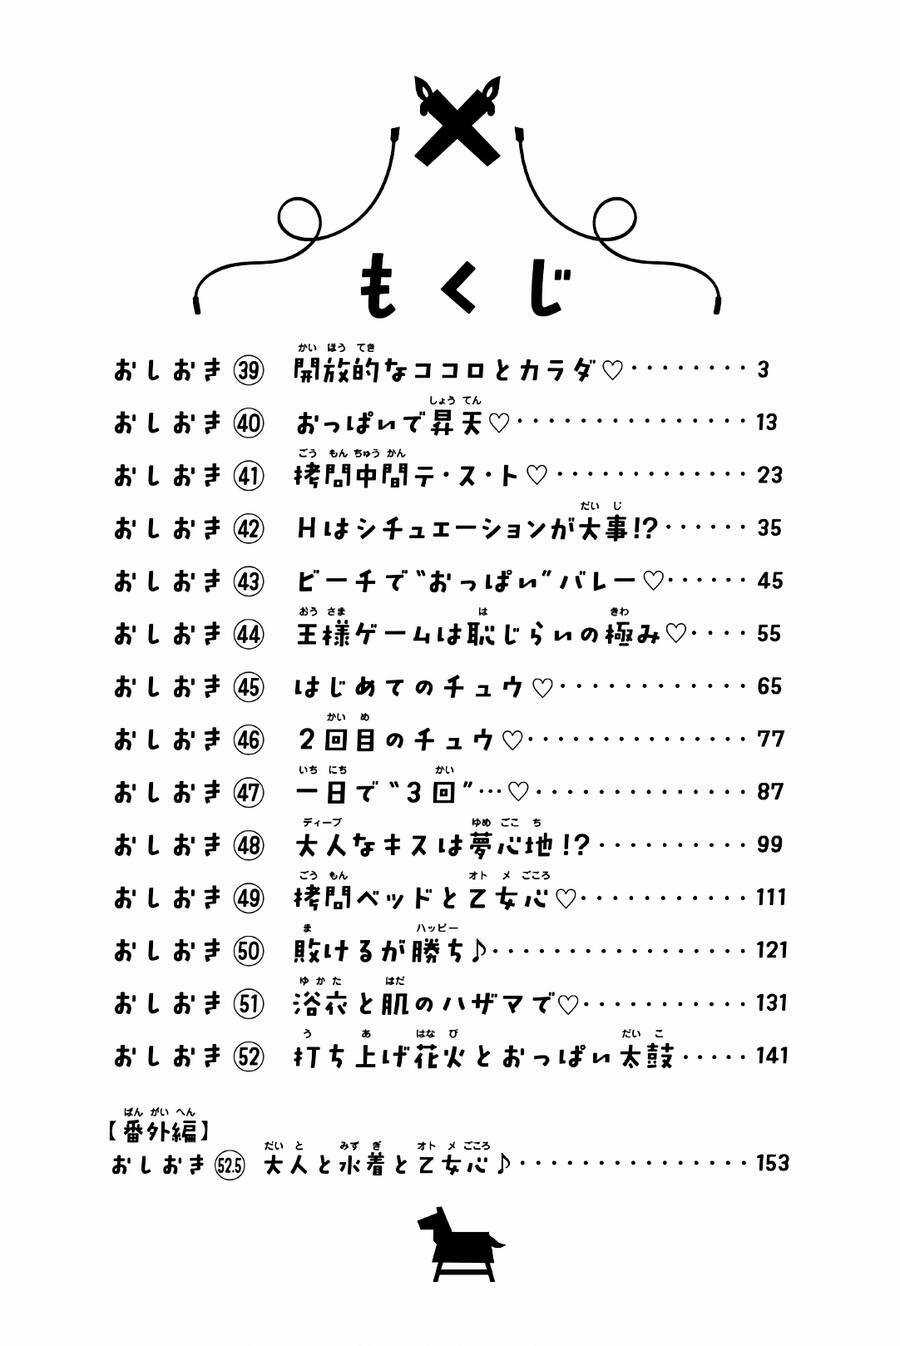 もくじ
おしおき㊴ 開放的なココロとカラダ♡‥‥‥‥ 3
おしおき㊵ おっぱいで昇天♡‥‥‥‥‥‥‥ 13
おしおき㊶ 拷問中間テ・ス・ト♡‥‥‥‥‥‥ 23
おしおき㊷ Hはシチュエーションが大事!?‥‥‥ 35
おしおき㊸ ビーチで“おっぱい”バレー♡‥‥‥ 45
おしおき㊹ 王様ゲームは恥じらいの極み♡‥‥ 55
おしおき㊺ はじめてのチュウ♡‥‥‥‥‥‥ 65
おしおき㊻ 2回目のチュウ♡‥‥‥‥‥‥‥ 77
おしおき㊼ 一日で“3回”…♡‥‥‥‥‥‥‥ 87
おしおき㊽ 大人なキスは夢心地!?‥‥‥‥‥ 99
おしおき㊾ 拷問ベッドと乙女心♡‥‥‥‥‥ 111
おしおき㊿ 敗けるが勝ち♪‥‥‥‥‥‥‥ 121
おしおき(51) 浴衣と肌のハザマで♡‥‥‥‥‥ 131
おしおき(52) 打ち上げ花火とおっぱい太鼓‥‥‥ 141
【番外編】
おしおき(52.5) 大人と水着と乙女心♪‥‥‥‥‥‥ 153